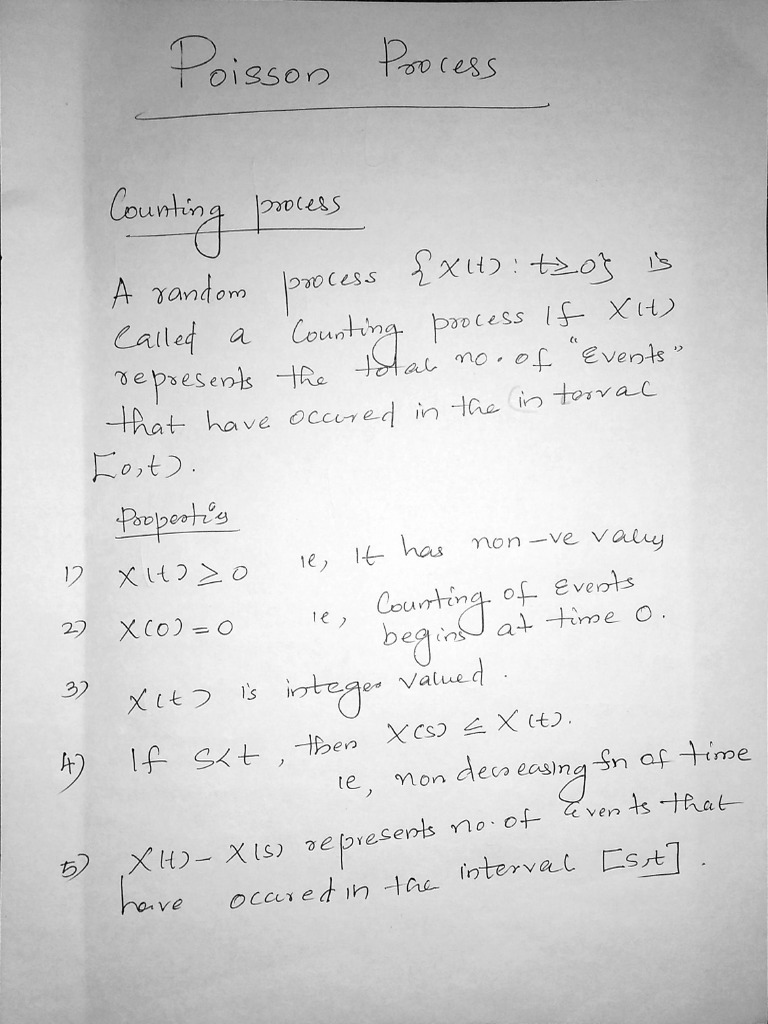 Poisson Process
Counting process
A random process {X(t) : t≥0} is
Called a Counting process If X(t)
represents the total no. of "Events"
that have occured in the interval
[0,t).
Properties
1) X(t) ≥ 0 ie, It has non-ve values
2) X(0) = 0 ie, Counting of Events
begins at time 0.
3) X(t) is integer valued.
4) If S<t, then X(s) ≤ X(t).
ie, non decreasing fn of time
5) X(t) - X(s) represents no. of Events that
have occured in the interval [s,t].